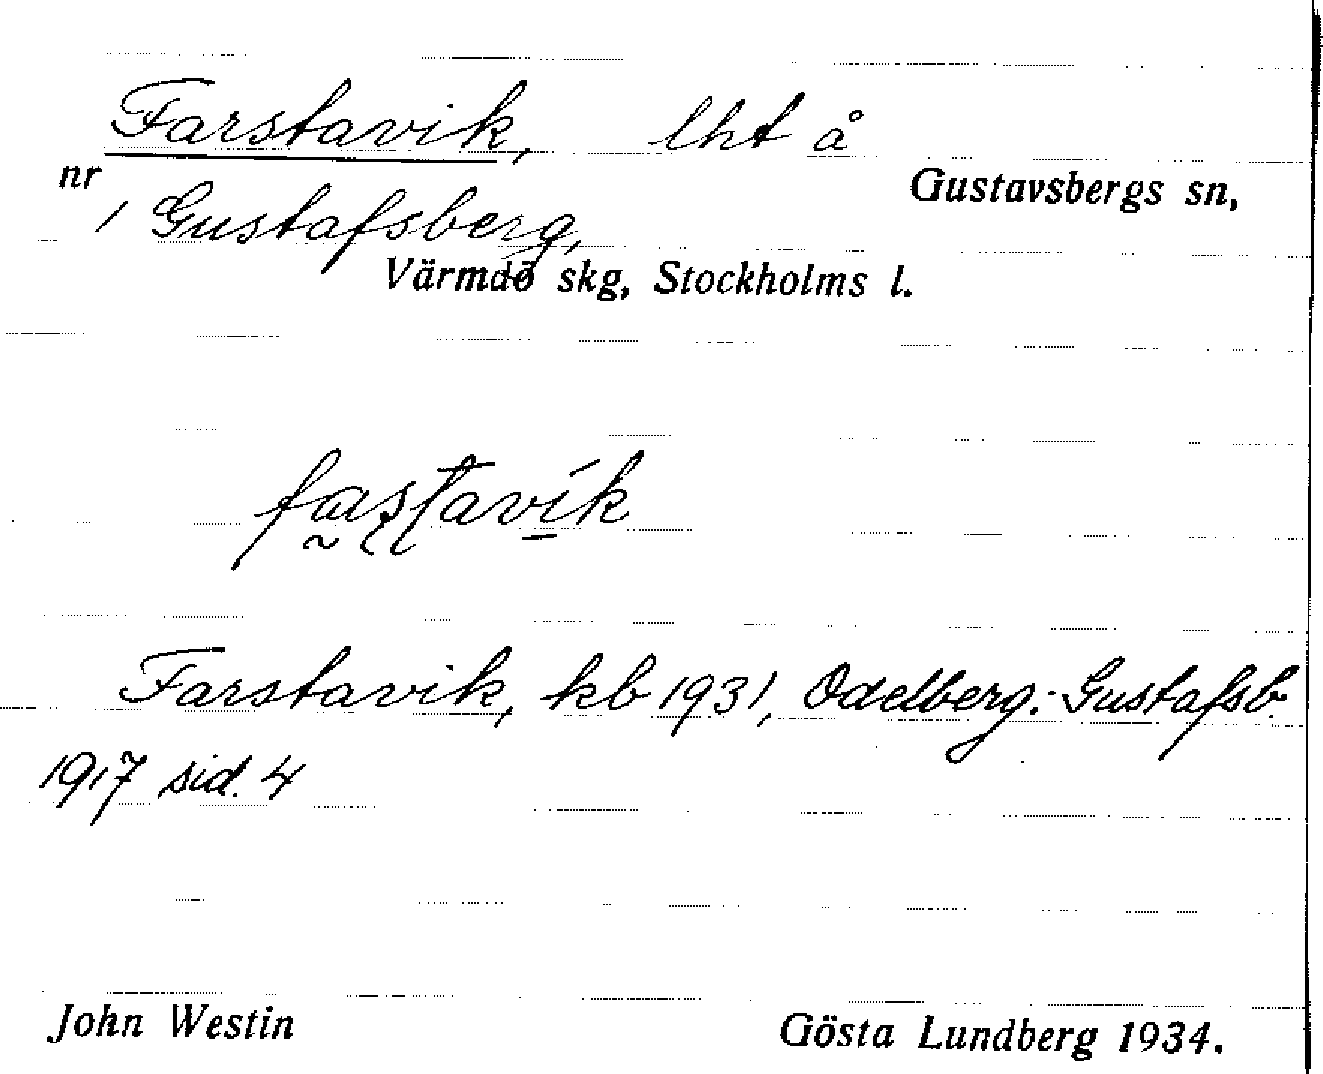 Farstavik, lht å
nr
1 Gustafsberg,
Gustavsbergs sn,
Värmdö skg, Stockholms l.
fastavik
Farstavik, kb 1931, Odelberg: Gustafsb.
1917 sid. 4
John Westin
Gösta Lundberg 1934.